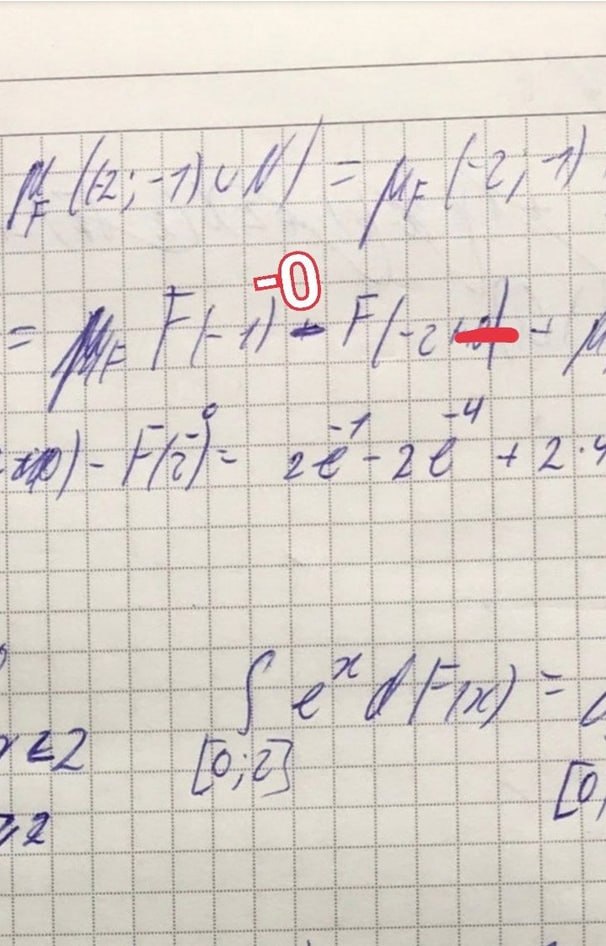 μ_F ((-2; -1) ∪ N) = μ_F (-2; -1)
-0
= μ_F F(-1) - F(-2
) - F(2⁻⁰) = 2e⁻¹ - 2e⁻⁴ + 2·4
∫ e^x dF(x) =
≤2 [0;2] [0,
2